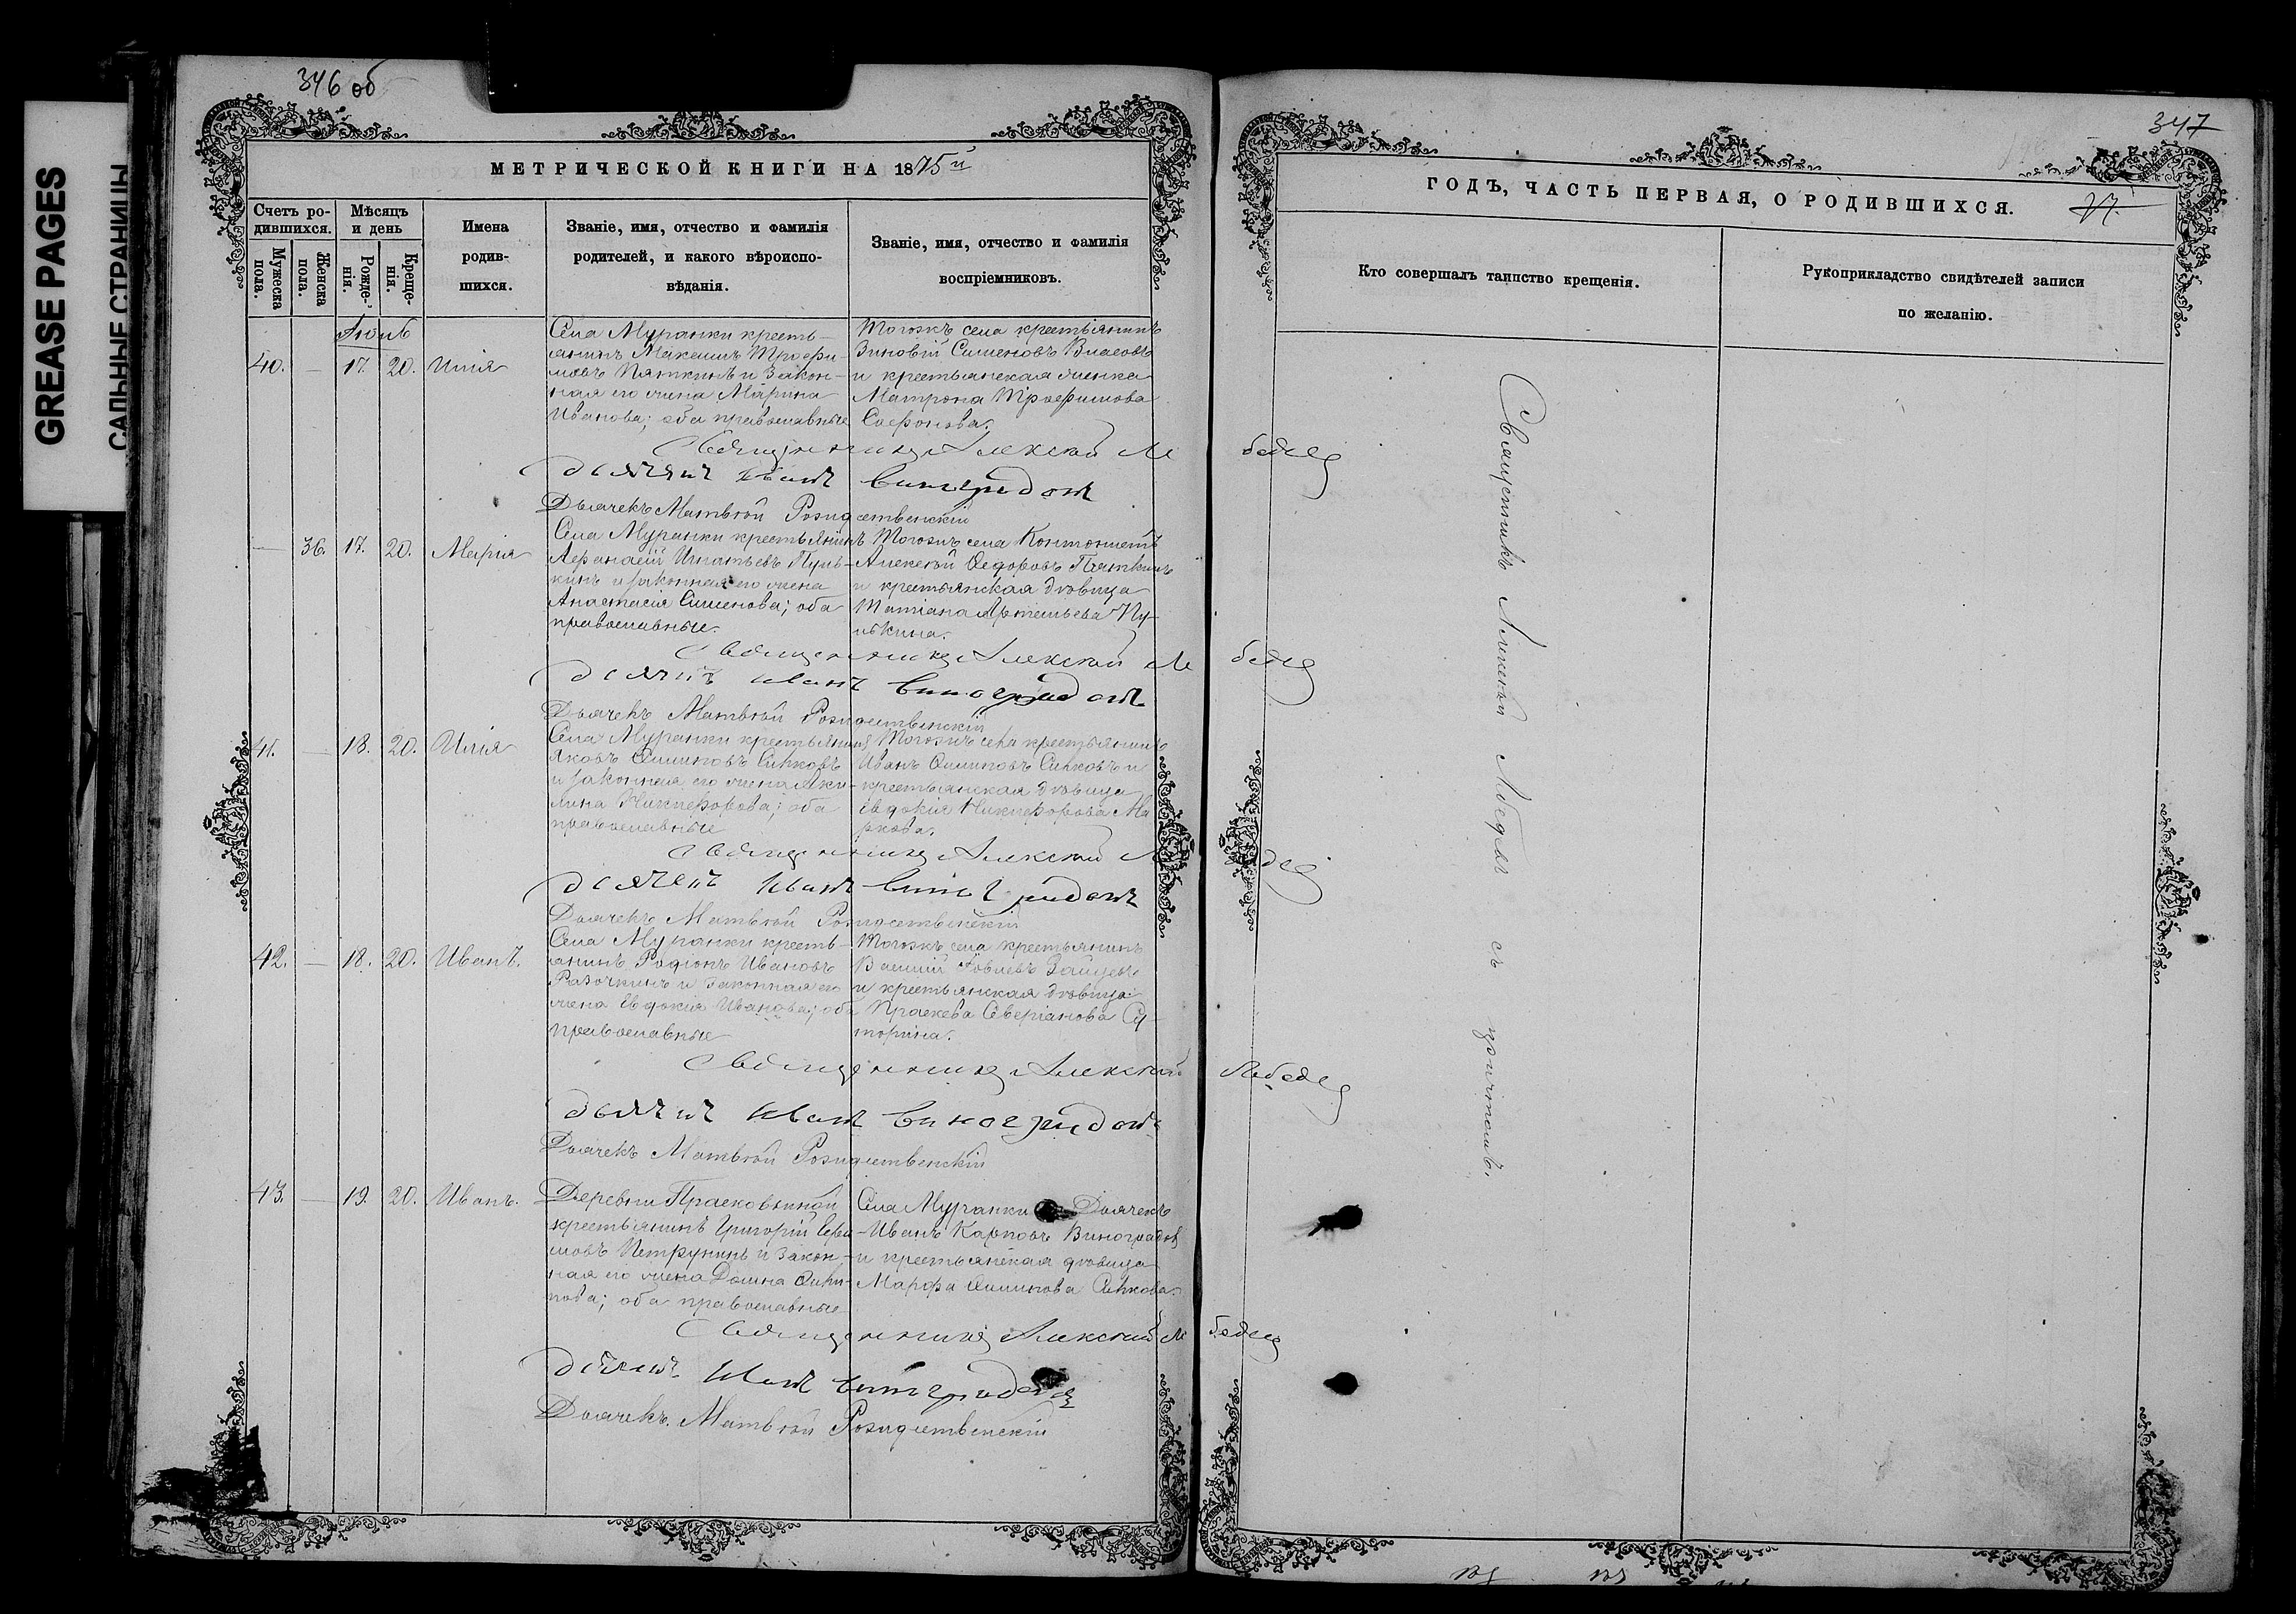 GREASE PAGES
САЛЬНЫЕ СТРАНИЦЫ
346 об
МЕТРИЧЕСКОЙ КНИГИ НА 1875й
Счетъ ро-
дившихся.
Мужеска
пола.
Женска
пола.
Мѣсяцъ
и день
Рожде-
нія.
Креще-
нія.
Имена
родив-
шихся.
Званіе, имя, отчество и фамилія
родителей, и какого вѣроиспо-
вѣданія.
Званіе, имя, отчество и фамилія
воспріемниковъ.
Іюль
40. — 17. 20. Илія
Села Муранки кресть-
янинъ Максимъ Трофи-
мовъ Пяткинъ и закон-
ная его жена Марина
Иванова; оба православные
Тогожъ села крестьянинъ
Зиновій Сименовъ Власовъ
и крестьянская женка
Матрона Трофимова
Сафонова.
Священникъ Алексѣй Лебедев
дьячекъ Иванъ Виноградовъ
Дьячекъ Матвѣй Рождественскій
— 36. 17. 20. Марія
Села Муранки крестьянинъ
Афанасій Игнатьевъ Пунь-
кинъ и законная его жена
Анастасія Симеонова; оба
православные.
Тогожъ села
Алексѣй Ѳедоровъ Пяткинъ
и крестьянская дѣвица
Татіана Артемьева Пу-
нькина.
Священникъ Алексѣй Лебедев
дьячекъ Иванъ Виноградовъ
Дьячекъ Матвѣй Рождественскій
41. — 18. 20. Илія
Села Муранки крестьянинъ
Яковъ Филиповъ Синковъ
и законная его жена Аки-
лина Никифорова; оба
православные
Тогожъ села крестьянинъ
Иванъ Филиповъ Синковъ и
крестьянская дѣвица
Евдокія Никифорова Ма
ркова.
Священникъ Алексѣй Лебедев
дьячекъ Иванъ Виноградовъ
Дьячекъ Матвѣй Рождественскій
42. — 18. 20. Иванъ.
Села Муранки кресть-
янинъ Родіонъ Ивановъ
и законная его
жена Евдокія Иванова; оба
православные
Тогожъ села крестьянинъ
Василій Іовлевъ Зайцевъ
и крестьянская дѣвица
Праскева Северіанова Су-
торина.
Священникъ Алексѣй Лебедев
дьячекъ Иванъ Виноградовъ
Дьячекъ Матвѣй Рождественскій
43. — 19. 20. Иванъ.
Деревни Прасковьиной
крестьянинъ Григорій Гера-
моръ Петрунинъ и закон-
ная его жена Домна Фили-
пова; оба православные
Села Муранки Дьячекъ
Иванъ Карповъ Виноградовъ
и крестьянская дѣвица
Марфа Филипова Синкова.
Священникъ Алексѣй Лебедев
дьячекъ Иванъ Виноградовъ
Дьячекъ. Матвѣй Рождественскій
347
ГОДЪ, ЧАСТЬ ПЕРВАЯ, О РОДИВШИХСЯ.
Кто совершалъ таинство крещенія.
Рукоприкладство свидѣтелей записи
по желанію.
Священникъ Алексѣй Лебедевъ съ причтомъ.